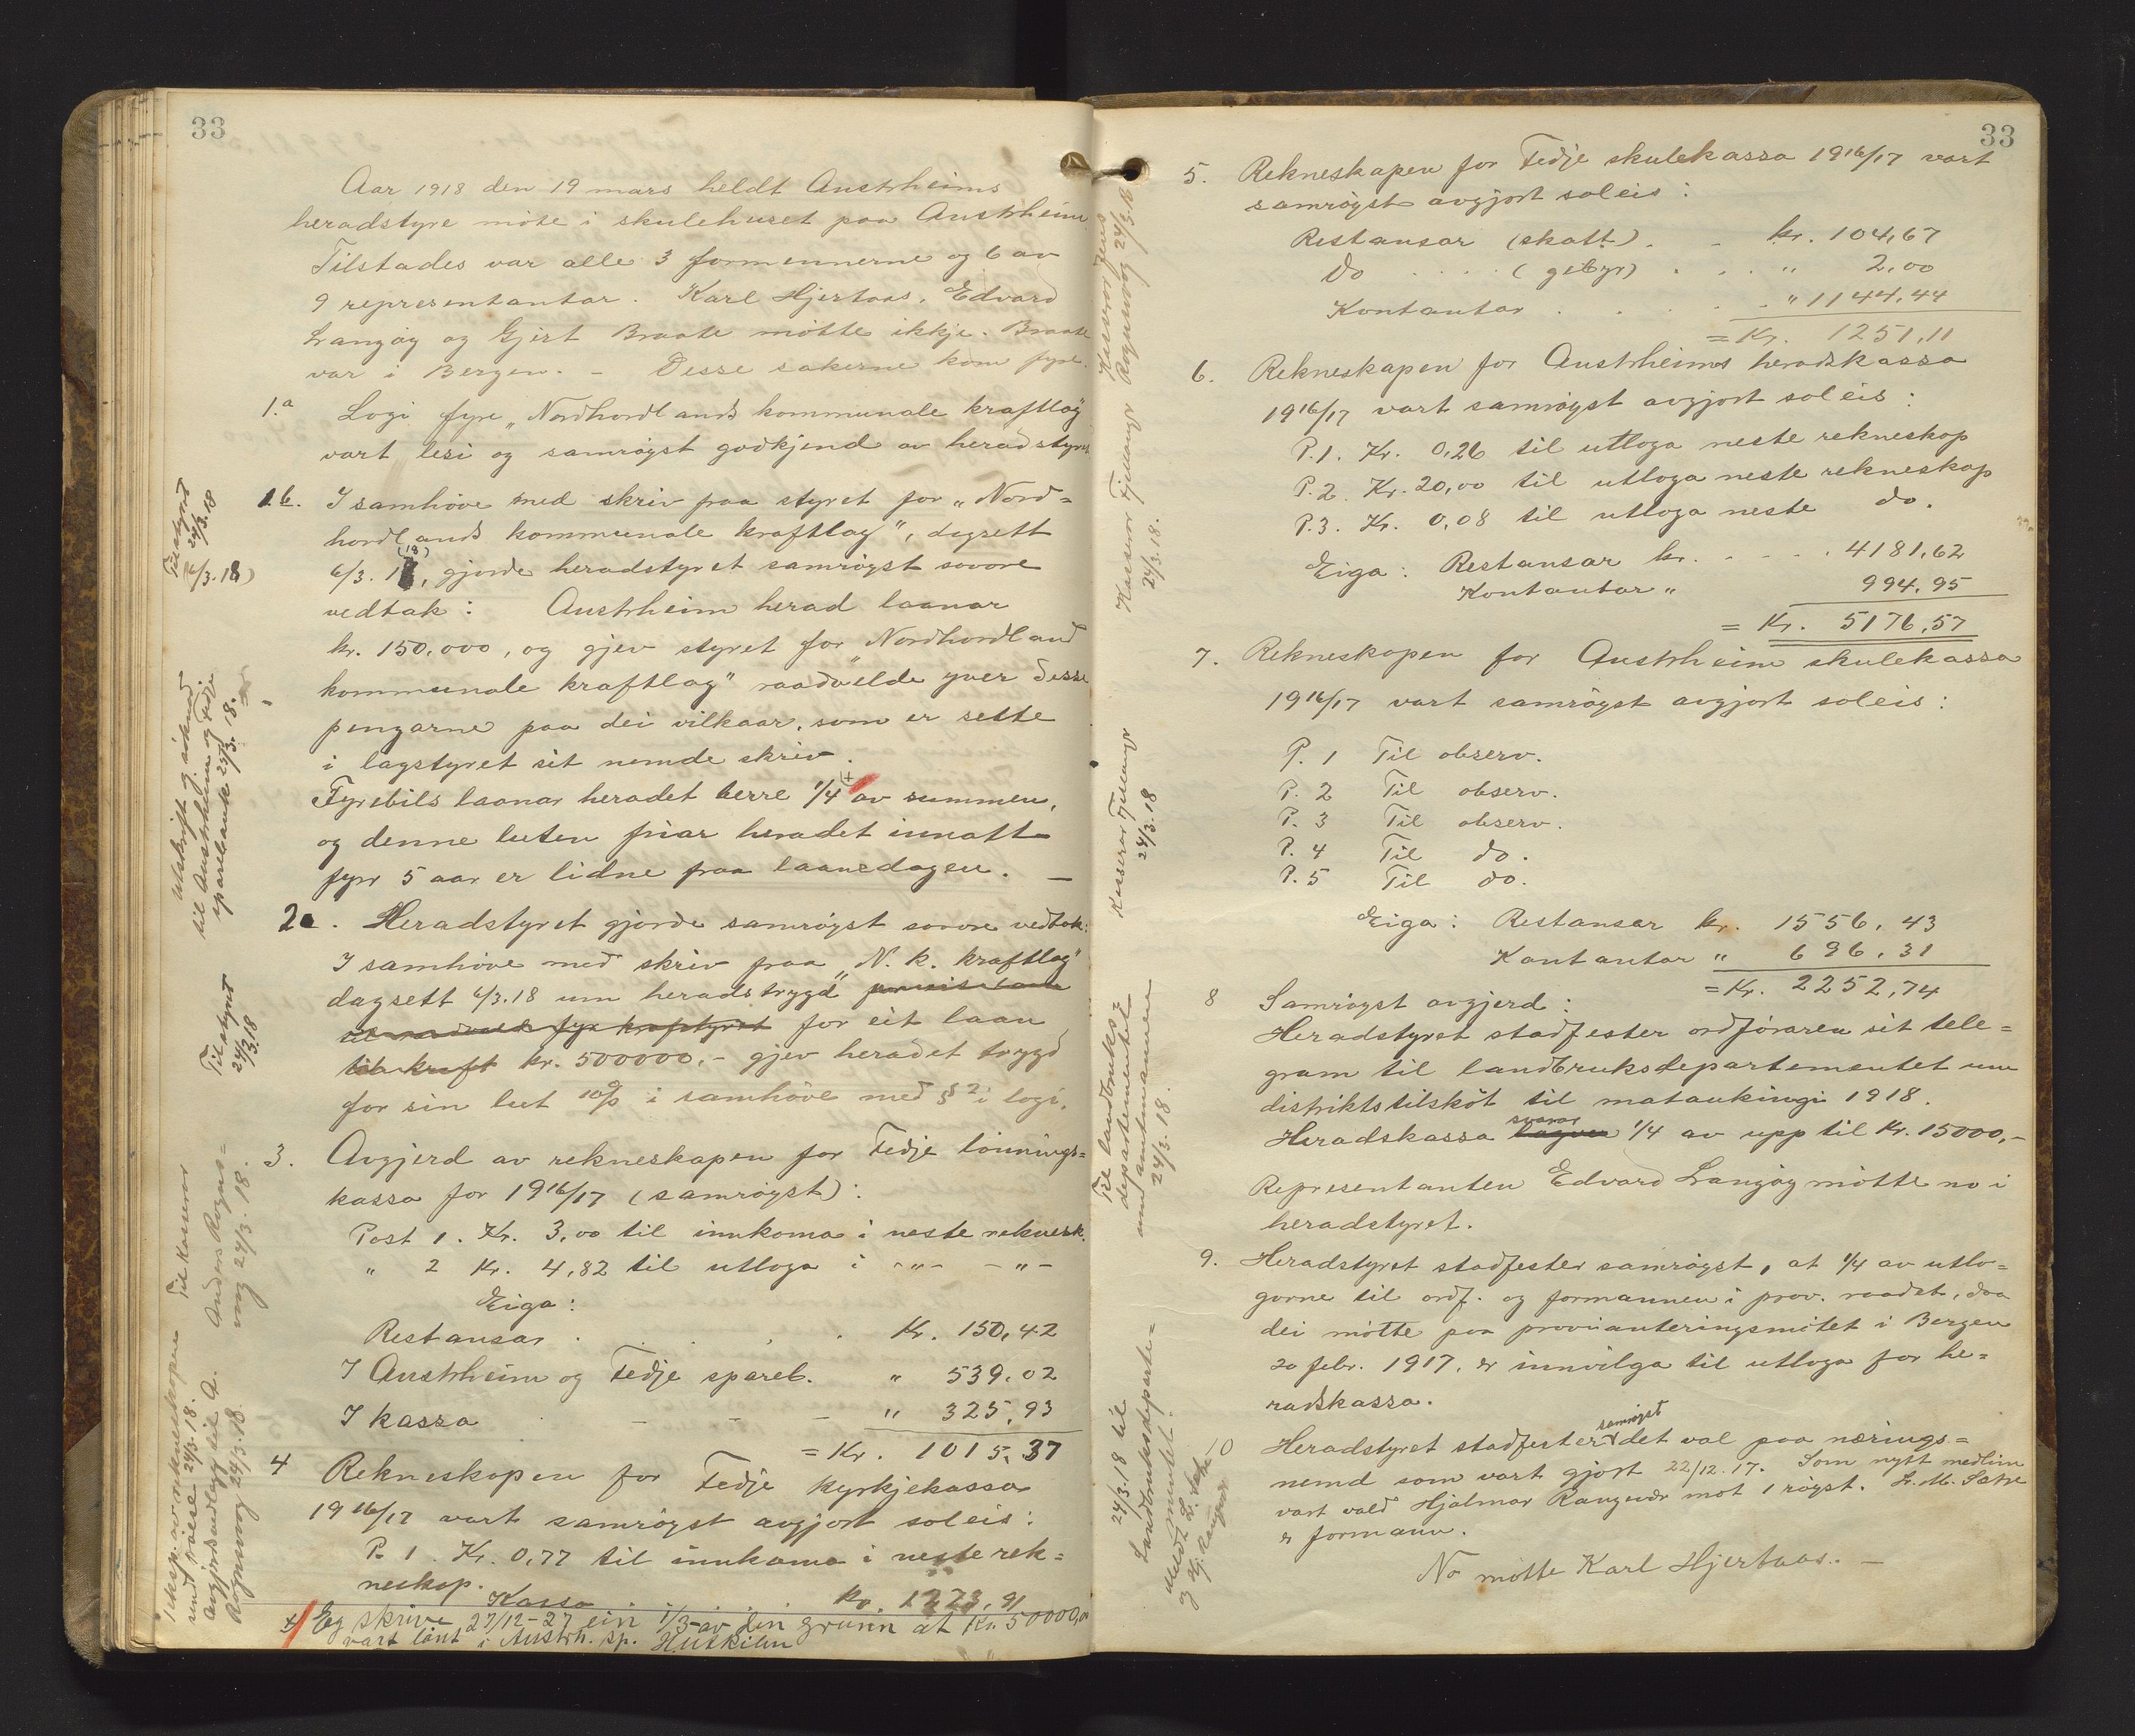 33
Aar 1918 den 19 mars heldt Austrheims
heradstyre möte i skulehuset paa Austrheim.
Tilstades var alle 3 formennerne og 6 av
9 representantar. Karl Hjertaas, Edvard
Langöy og Gjert Braate mötte ikkje. Braate
var i Bergen. – Desse sakerne kom fyre.
1.a Logi fyre „Nordhordlands kommunale kraftlag"
vart lesi og samröyst godkjend av heradstyret
1b. I samhöve med skriv fraa styret for „Nord=
hordlands kommunale kraftlag", dagsett
(18)
6/3. 18, gjorde heradstyret samröyst sovore
vedtak: Austrheim herad laanar
kr. 150.000, og gjev styret for „Nordhordland
kommunale kraftlag" raadvelde yver desse
pengarne paa dei vilkaar, som er sette
i lagstyret sit nemde skriv.
Fyrebils laanar heradet berre 1/4 (+) av summen,
og denne luten friar heradet innatt
fyrr 5 aar er lidne fraa laanedagen. –
2a. Heradstyret gjorde samröyst sovore vedtak:
I samhöve med skriv fraa „N. k. kraftlag"
dagsett 6/3.18 um heradstrygd
for eit laan
til kraft kr. 500000,- gjev heradet trygd
for sin lut 10% i samhöve med § 2 i logi.
3. Avgjerd av rekneskapen for Fedje lönnings=
kassa for 1916/17 (samröyst):
Post 1. Kr. 3,00 til innkoma i neste reknesk.
" 2 Kr. 4,82 til utloga i -"- -"-
Eiga:
Restansar . . . . . Kr. 150,42
I Austrheim og Fedje spareb. " 539,02
I kassa - - - " 325,93
= Kr. 1015,37
4 Rekneskapen for Fedje kyrkjekassa
1916/17 vart samröyst avgjort soleis:
P. 1. Kr. 0,77 til innkoma i neste rek=
neskap.
Kassa . . . . kr. 1223,91
+ Eg skrive 27/12-27 ein 1/3 av din grunn at Kr. 50000,00
vart lånt i Austrh. sp. H. Utkilen
Tilstyrt
24/3.18
(6/3.18)
Utskrift og söknad
til Austrheim og Fedje
sparebank 24/3. 18.
Tilstyrt
24/3.18
Til kasserar
Anders Rognö=
ng 24/3. 18.
1 eksp. av rekneskapen
send 24/3.18.
Avgjerd til A.
Rognevog 24/3.18
33
5. Rekneskapen for Fedje skulekassa 1916/17 vart
samröyst avgjort soleis:
Restansar (skatt) . - kr. 104,67
Do . . . . (gebyr) . . . " 2,00
Kontantar . . . . . " 1144,44
= Kr. 1251,11
6. Rekneskapen for Austrheims heradskassa
1916/17 vart samröyst avgjort soleis:
P. 1. Kr. 0,26 til utloga neste rekneskap
P. 2. Kr. 20,00 til utloga neste rekneskap
P. 3. Kr. 0,08 til utloga neste do.
Eiga: Restansar kr. - - - . 4181,62
Kontantar " 994,95
= Kr. 5176,57
7. Rekneskapen for Austrheim skulekassa
1916/17 vart samröyst avgjort soleis:
P. 1 Til observ.
P. 2 Til observ.
P. 3 Til observ.
P. 4 Til do.
P. 5 Til do.
Eiga: Restansar kr. 1556,43
Kontantar " 696,31
= Kr. 2252,74
8 Samröyst avgjerd:
Heradstyret stadfester ordföraren sit tele=
gram til landbruksdepartementet um
distriktstilsköt til mataukingi 1918.
svarar
Heradskassa 1/4 av upp til Kr. 15000,-
Representanten Edvard Langöy mötte no i
heradstyret.
9. Heradstyret stadfester samröyst, at 1/4 av utlo=
gorne til ordf. og formannen i prov. raadet, daa
dei mötte paa provianteringsmötet i Bergen
20 febr. 1917, er innvilga til utloga for he=
radskassa.
samröyst
10 Heradstyret stadfester det val paa nærings=
nemd som vart gjort 22/12.17. Som nytt medlim
vart vald Hjalmar Rangevær mot 1 röyst. L. M. Sætre
er formann.
No mötte Karl Hjertaas. –
Kasserar Jens
Rognevog 24/3.18
Kasserar Fjellanger
24/3.18.
Kasserar Fjellanger
24/3.18
Til landbruks=
departementet
um amtmannen
24/3.18.
24/3.18 til
landbruksdeparte=
mentet.
Medt L. Sætre
og Hj. Rangevær